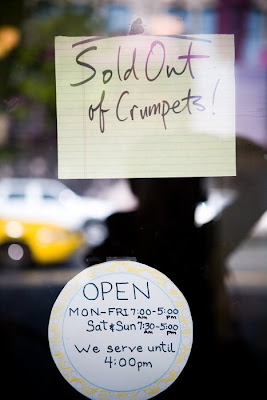 Sold Out
of Crumpets!
OPEN
MON-FRI 7:00AM-5:00pm
Sat & Sun 7:30AM-5:00pm
We serve until
4:00pm